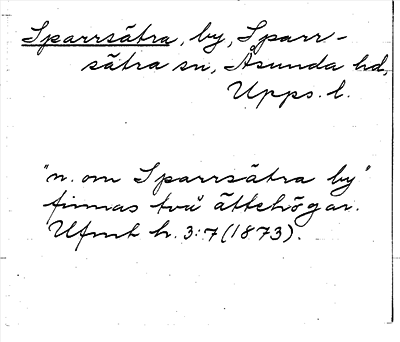 Sparrsätra, by, Sparr-
sätra sn, Åsunda hd,
Upps. l.
"n. om Sparrsätra by"
finnas två ättehögar.
Ufmt h. 3:7 (1873).